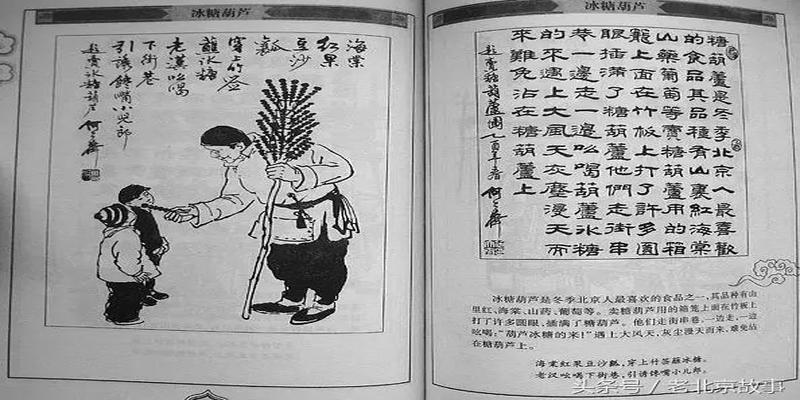 冰糖葫芦
海棠
红果
豆沙
瓤
穿上竹签
蘸冰糖
老汉吆喝
下街巷
引诱馋嘴小儿郎
题卖冰糖葫芦 何大齊
冰糖葫芦
糖葫蘆是冬季北京人最喜歡
的食品其品種有山裏紅海棠
山藥葡萄等賣糖葫蘆用的箱
籠上面在竹板上打了許多圓
眼插滿了糖葫蘆他們走街串
巷一邊走一邊吆喝葫蘆冰糖
的來遇上大風天灰塵漫天而
來難免沾在糖葫蘆上
题賣糖葫蘆圖乙酉年春 何大齊
冰糖葫芦是冬季北京人最喜欢的食品之一,其品种有山
里红、海棠、山药、葡萄等。卖糖葫芦用的箱笼上面在竹板上
打了许多圆眼,插满了糖葫芦。他们走街串巷,一边走,一边
吆喝:"葫芦冰糖的来!"遇上大风天,灰尘漫天而来,难免沾
在糖葫芦上。
海棠红果豆沙瓤,穿上竹签蘸冰糖。
老汉吆喝下街巷,引诱馋嘴小儿郎。
头条号 / 老北京故事